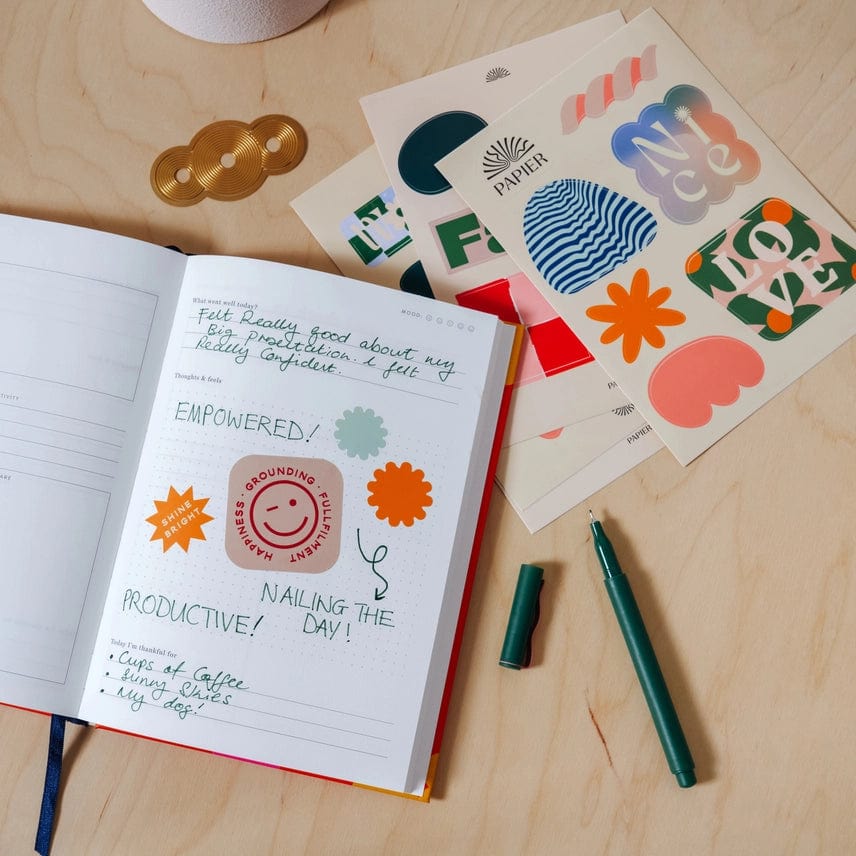 What went well today?
MOOD:
Felt Really good about my
Big presentation. I felt
Really Confident.
Thoughts & feels
EMPOWERED!
SHINE
BRIGHT
HAPPINESS · GROUNDING · FULLFILMENT
PRODUCTIVE!
NAILING THE
DAY!
Today I'm thankful for
• Cups of Coffee
• Sunny Skies
• My dog!
PAPIER
Nice
LOVE
PAPIER